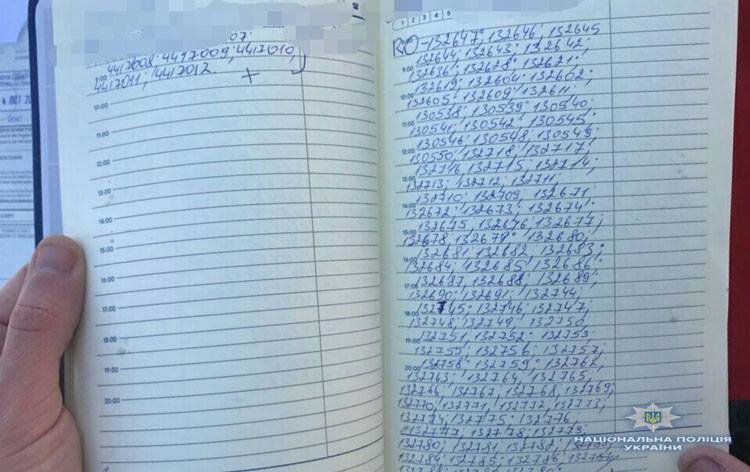 07.
4417008; 4417009; 4417010,
4417011; 4417012.
10:00
11:00
12:00
13:00
14:00
15:00
16:00
17:00
18:00
19:00
20:00
1 2 3 4 5
RO-132647; 132646; 132645
132644; 132643; 132642;
132636; 132628; 132621;
132619; 132604; 132602;
132605; 132609; 132611.
130538; 130539; 130540;
130541; 130542; 130545;
130546; 130548; 130549
130550; 132718; 132717;
132716; 132715; 132714;
132713; 132712; 132711;
132710; 132709; 132671
132672; 132673; 132674;
132675; 132676; 132677;
132678, 132679; 132680;
132681; 132682; 132683;
132684; 132685; 132686;
132687; 132688; 132689;
132690; 132691; 132744;
132745; 132746; 132747,
132748; 132749; 132750,
132751; 132752; 132753
132755; 132756; 132757;
132758; 132759; 132762,
132763; 132764; 132765
132766; 132767; 132768; 132769,
132770; 132771; 132772; 132773;
132774; 132775; 132776
132777; 132778; 132779;
132780; 132781; 132782;
НАЦІОНАЛЬНА ПОЛІЦІЯ
УКРАЇНИ